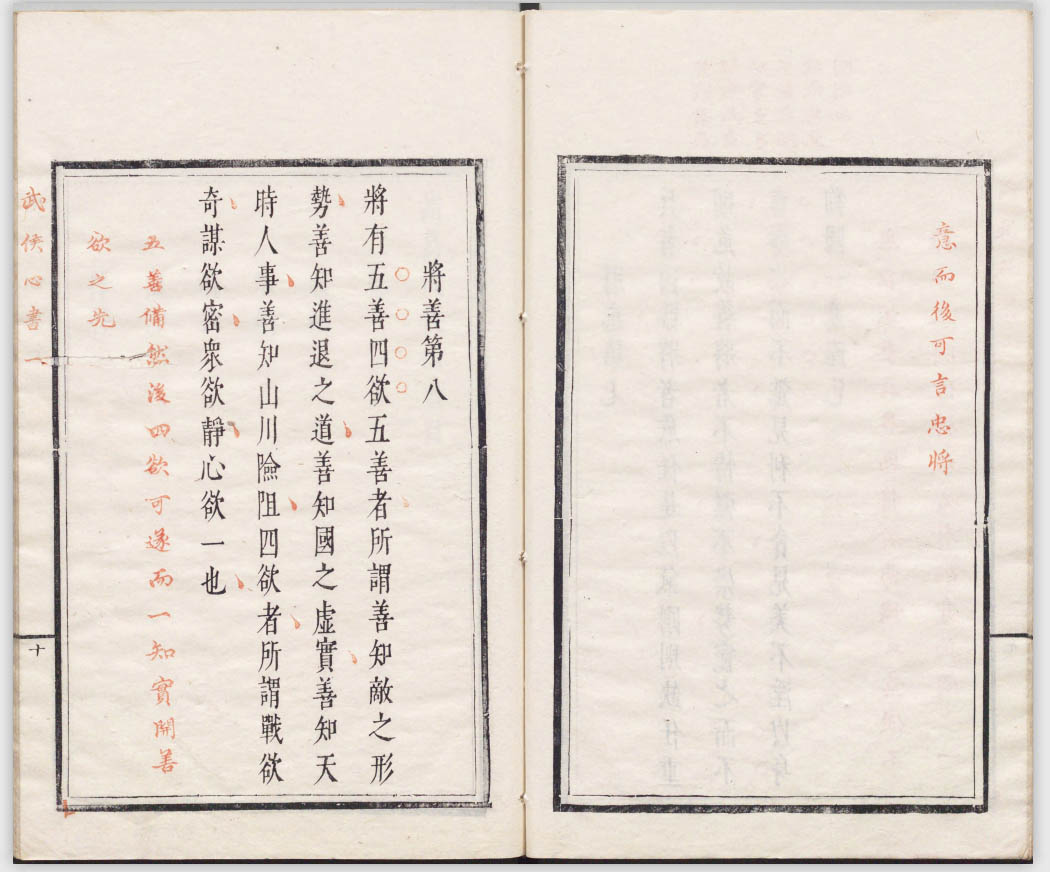 意而後可言忠將
將善第八
將有五善四欲五善者所謂善知敵之形
勢善知進退之道善知國之虛實善知天
時人事善知山川險阻四欲者所謂戰欲
奇謀欲密衆欲靜心欲一也
五善備然後四欲可遂而一知實開善
欲之先
武侯心書一
十